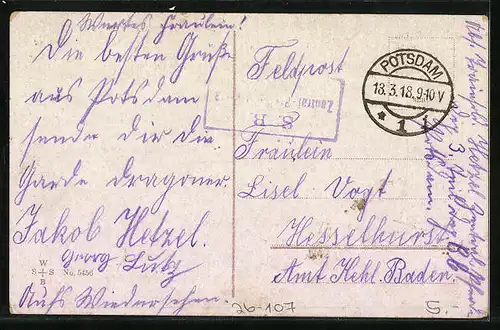 Wertes Fräulein!
Die besten Grüße
aus Potsdam
sendet Dir die
Garde Dragoner.
Jakob Hetzel.
Georg Lutz
Aufs Wiedersehen.
W
S+S No. 5456
B
Feldpost
S. B.
Zentral
POTSDAM
18.3.18.9-10 V
* 1 f
Fräulein
Lisel Vogt
Hesselhurst
Amt Kehl. Baden.
26-107
5.-